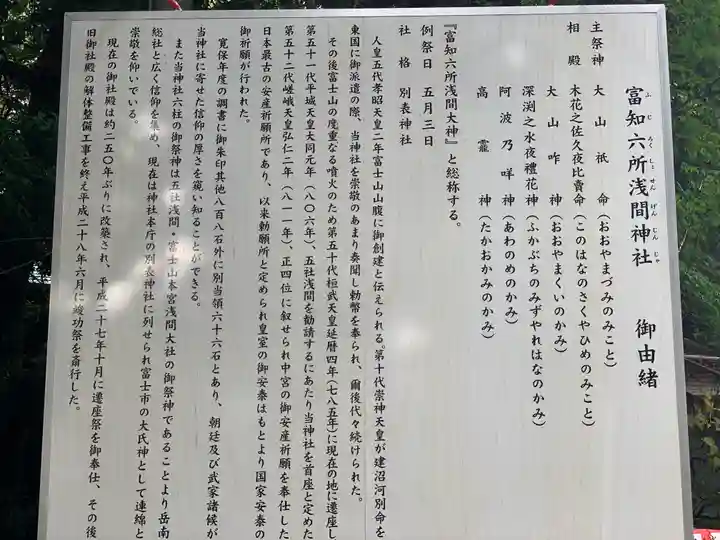 富知六所浅間神社 御由緒
ふじろくしょせんげんじんじゃ
主祭神 大山祇命(おおやまづみのみこと)
相殿 木花之佐久夜比賣命(このはなのさくやひめのみこと)
大山咋神(おおやまくいのかみ)
深渕之水夜禮花神(ふかぶちのみずやれはなのかみ)
阿波乃咩神(あわのめのかみ)
高龗神(たかおかみのかみ)
『富知六所浅間大神』と総称する。
例祭日 五月三日
社格 別表神社
人皇五代孝昭天皇二年富士山山腹に御創建と伝えられる。第十代崇神天皇が建沼河別命を
東国に御派遣の際、当神社を崇敬のあまり奏聞し勅幣を奉られ、爾後代々続けられた。
その後富士山の度重なる噴火のため第五十代桓武天皇延暦四年(七八五年)に現在の地に遷座し
第五十一代平城天皇大同元年(八〇六年)、五社浅間を勧請するにあたり当神社を首座と定めた
第五十二代嵯峨天皇弘仁二年(八一一年)、正四位に叙せられ中宮の御安産祈願を奉仕した
日本最古の安産祈願所であり、以来勅願所と定められ皇室の御安泰はもとより国家安泰の
御祈願が行われた。
寛保年度の調書に御朱印其他八百八石外に別当領六十六石とあり、朝廷及び武家諸候が
当神社に寄せた信仰の厚さを窺い知ることができる。
また当神社六柱の御祭神は五社浅間・富士山本宮浅間大社の御祭神であることより岳南
総社と広く信仰を集め、現在は神社本庁の別表神社に列せられ富士市の大氏神として連綿と
崇敬を仰いでいる。
現在の御社殿は約二五〇年ぶりに改築され、平成二十七年十月に遷座祭を御奉仕、その後
旧御社殿の解体整備工事を終え平成二十八年六月に竣功祭を斎行した。